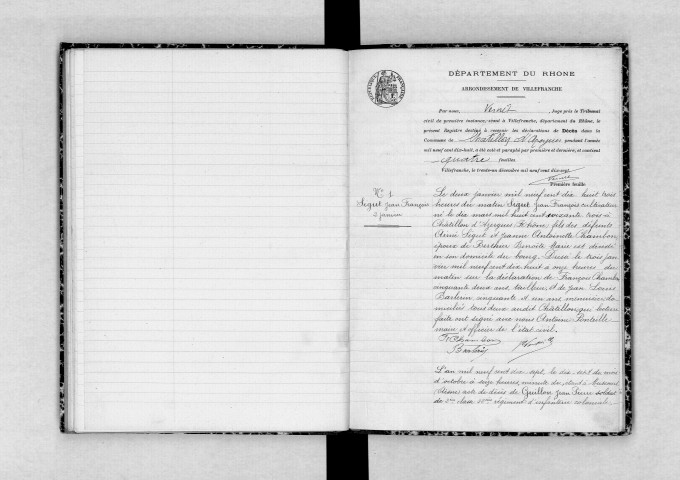 DÉPARTEMENT DU RHONE
ARRONDISSEMENT DE VILLEFRANCHE
Par nous, juge près le Tribunal
civil de première instance, séant à Villefranche, département du Rhône, le
présent Registre destiné à recevoir les déclarations de Décès dans la
Commune de Chatillon d'Azergues pendant l'année
mil neuf cent dix-huit, a été coté et paraphé par première et dernière, et contient
quatre feuilles
Villefranche, le trente-un décembre mil neuf cent dix-sept
Première feuille
N° 1
Sigut Jean François
2 janvier
Le deux janvier mil neuf cent dix huit trois
heures du matin Sigut Jean François cultivateur
né le dix mars mil huit cent soixante trois à
Châtillon d'Azergues Rhône, fils des défunts
Aimé Sigut et Jeanne Antoinette Chambon
époux de Berthier Benoîte Marie est décédé
en son domicile du bourg. Dressé le trois jan
vier mil neuf cent dix huit à onze heures du
matin sur la déclaration de François Chambon
cinquante deux ans, tailleur, et de Jean Louis
cinquante et un ans, menuisier, do
miciliés tous deux audit Châtillon, qui lecture
faite ont signé avec nous Antoine
maire et officier de l'état civil.
F. Chambon
L'an mil neuf cent dix sept, le dix sept du mois
d'octobre à seize heures, minute du
acte de décès de Guillon Jean Pierre soldat
de 2me classe régiment d'infanterie coloniale